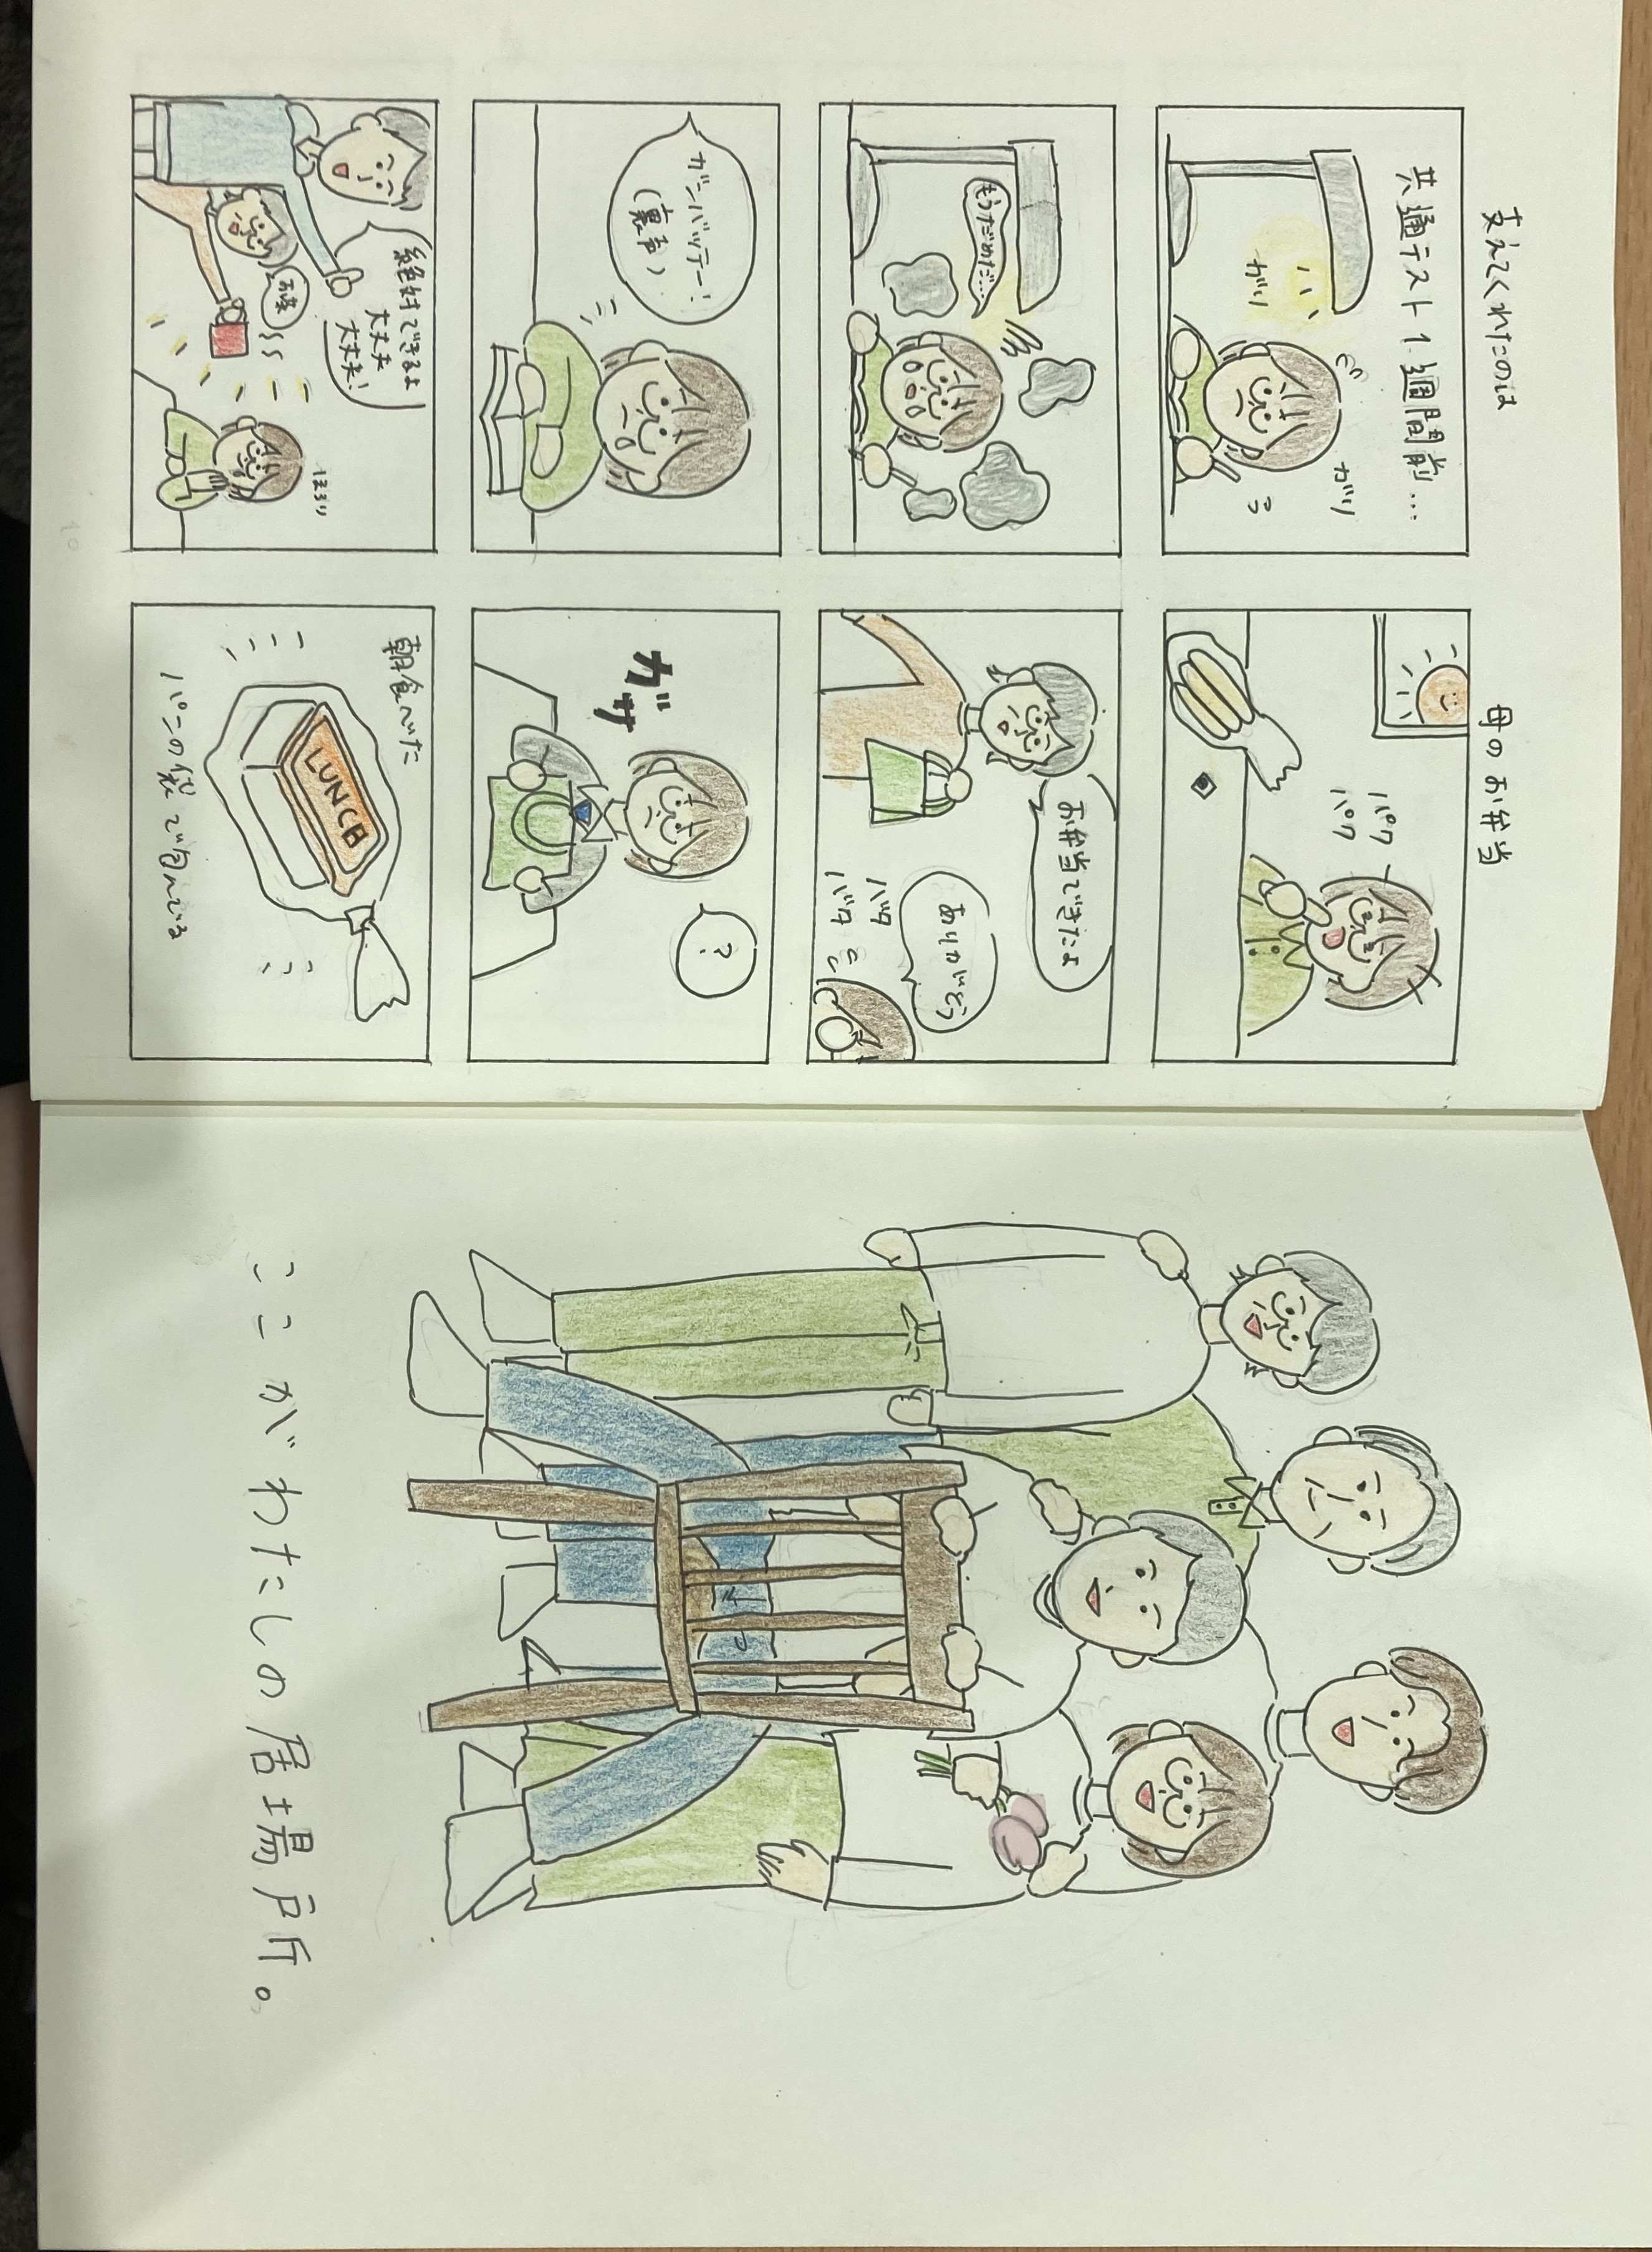 支えてくれたのは
共通テスト1週間前…
ガリ
ガリ
もうだめだ…
ガンバッテー!
(裏声)
絶対できるよ
大丈夫
大丈夫!
お茶
ほろり
母のお弁当
パク
パク
お弁当できたよ
ありがとう
バタ
バタ
ガサ
?
朝食べた
LUNCH
パンの袋で包んでる
ここがわたしの居場所。